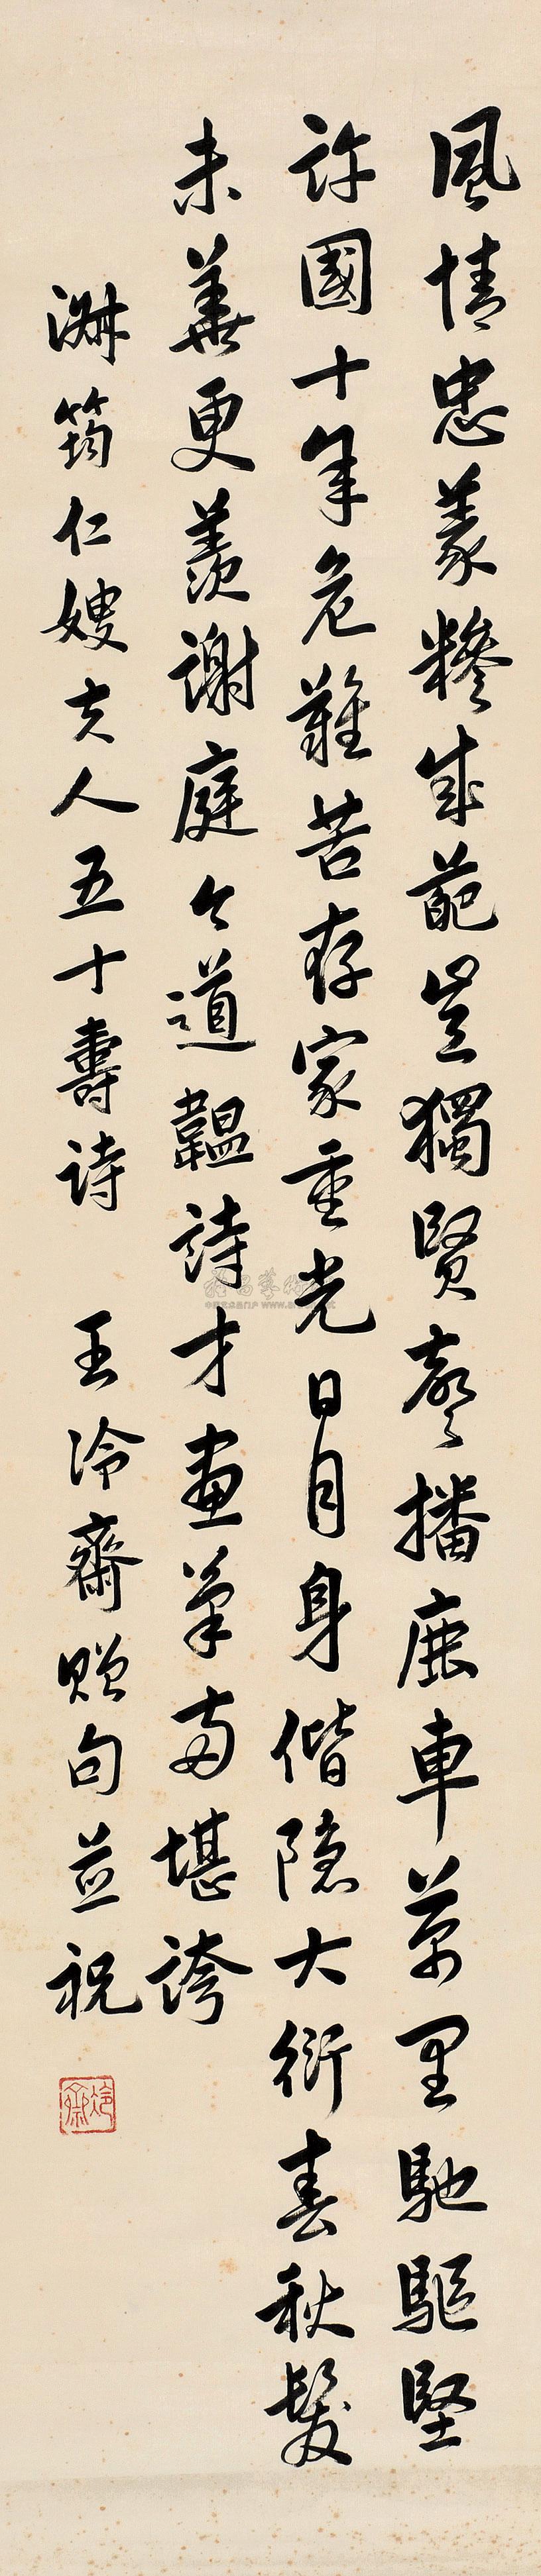 風情忠義糝成葩豈獨賢聲播鹿車萬里馳驅堅
許國十年危難苦存家重光日月身偕隱大衍春秋髮
未華更羨謝庭今道韞詩才畫筆兩堪誇
淋筠仁嫂夫人五十壽詩 王冷齋贈句並祝
冷齋